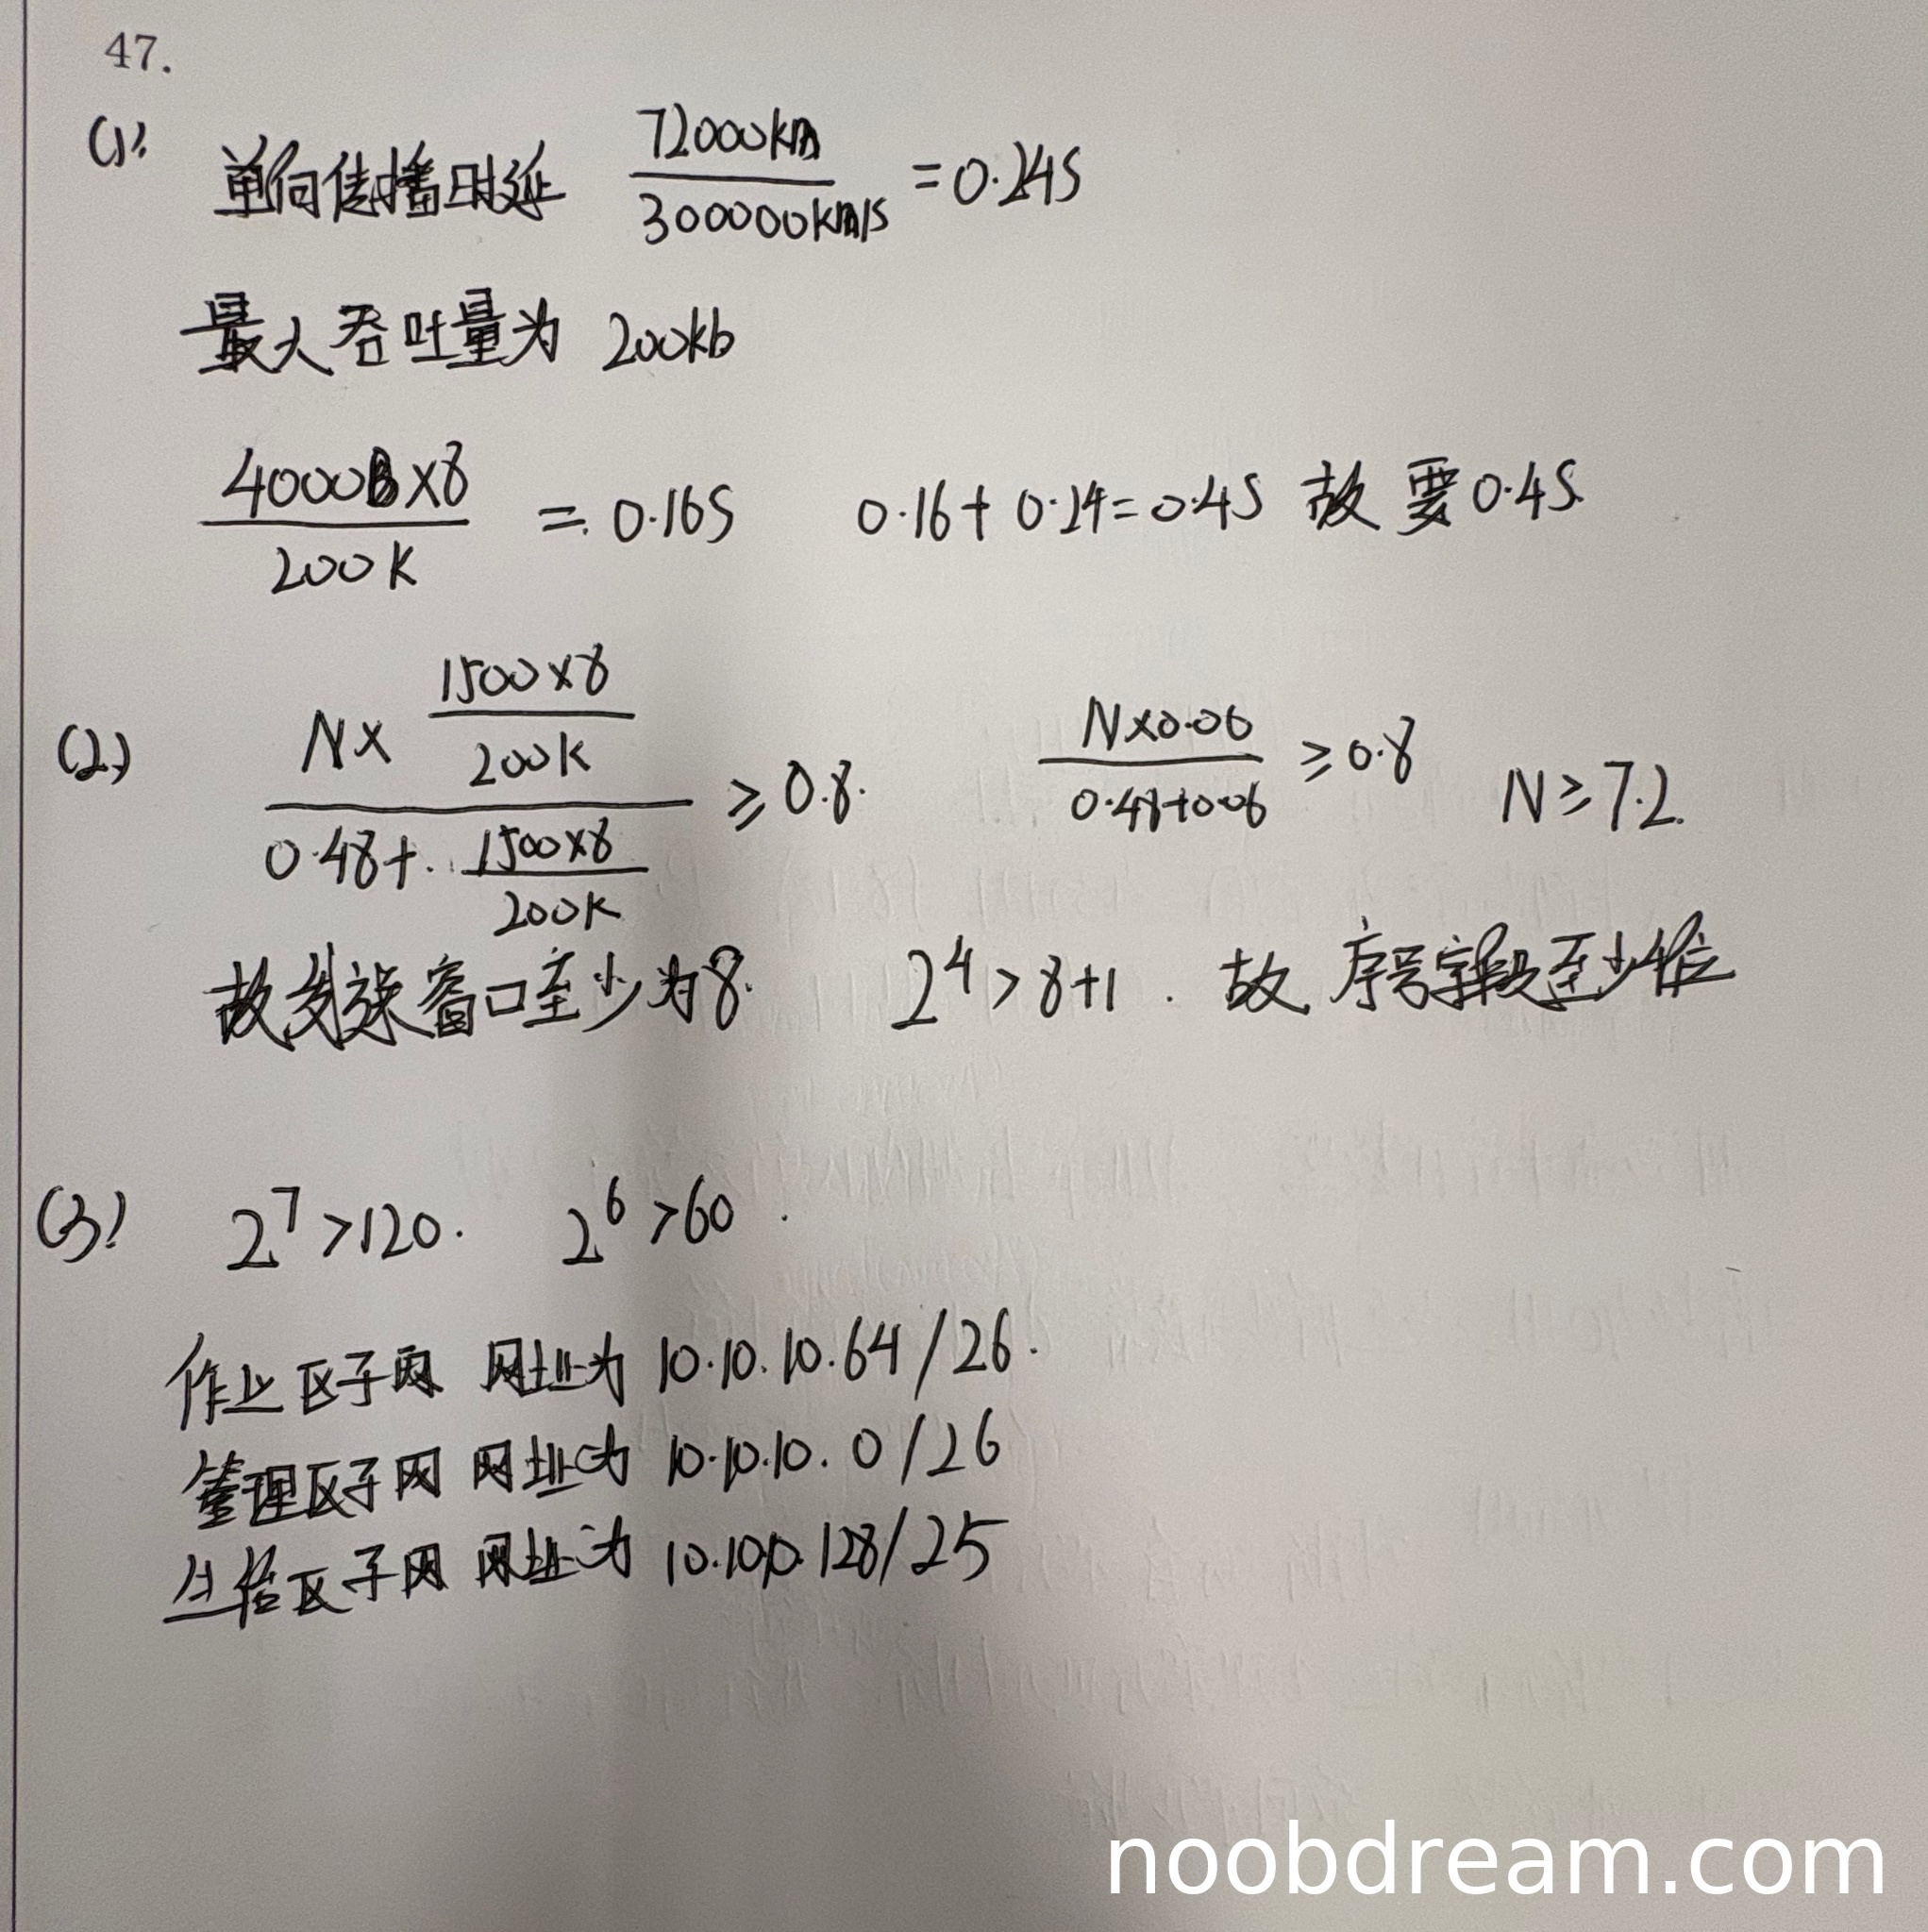 47.
(1) 单向传播时延 72000km / 300000km/s = 0.24s
最大吞吐量为 200kb
4000B×8 / 200K = 0.16s 0.16+0.24=0.4s 故要0.4s
(2) N× 1500×8 / 200K / 0.48+ 1500×8 / 200K ≥0.8. N×0.06 / 0.48+0.06 ≥0.8 N≥7.2.
故发送窗口至少为8. 2^4>8+1. 故序号字段至少4位
(3) 2^7>120. 2^6>60.
作业区子网 网址为 10.10.10.64/26.
管理区子网 网址为 10.10.10.0/26
生活区子网 网址为 10.10.10.128/25
noobdream.com